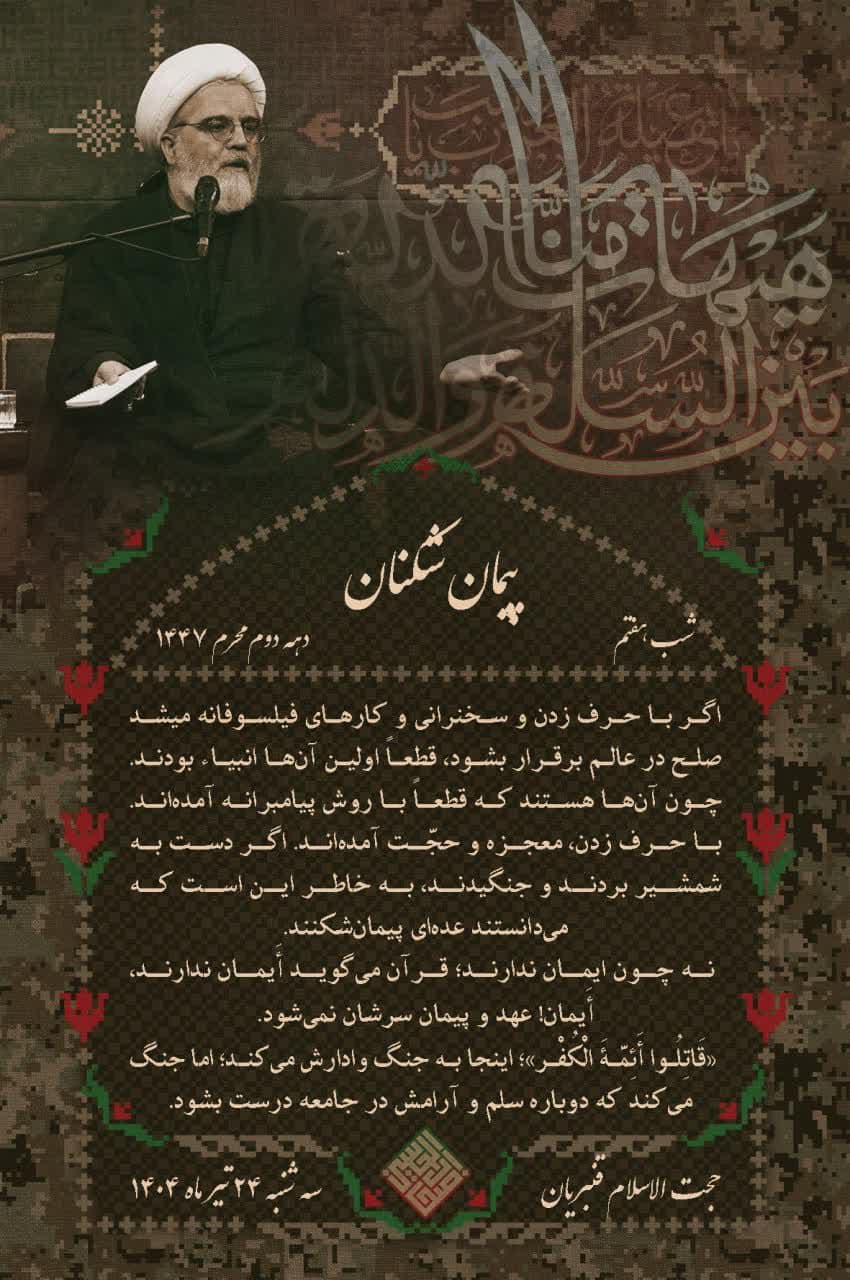 یا عقیلة العرب یا زینب
هَیْهَاتَ مِنَّا الذِّلَّة
بَیْنَ السِّلَّةِ وَالذِّلَّةِ
پیمان شکنان
شب هفتم
دهه دوم محرم ۱۴۴۷
اگر با حرف زدن و سخنرانی و کارهای فیلسوفانه میشد
صلح در عالم برقرار بشود، قطعاً اولین آن‌ها انبیاء بودند.
چون آن‌ها هستند که قطعاً با روش پیامبرانه آمده‌اند.
با حرف زدن، معجزه و حجّت آمده‌اند. اگر دست به
شمشیر بردند و جنگیدند، به خاطر این است که
می‌دانستند عده‌ای پیمان‌شکنند.
نه چون ایمان ندارند؛ قرآن می‌گوید أَیمان ندارند،
أَیمان! عهد و پیمان سرشان نمی‌شود.
«قَاتِلُوا أَئِمَّةَ الْكُفْرِ»؛ اینجا به جنگ وادارش می‌کند؛ اما جنگ
می‌کند که دوباره سلم و آرامش در جامعه درست بشود.
حجت الاسلام قنبریان
سه شنبه ۲۴ تیر ماه ۱۴۰۴